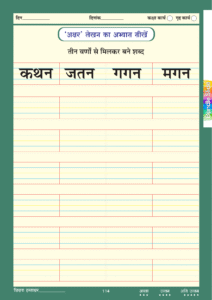 दिन
दिनांक
कक्षा कार्य गृह कार्य
'अक्षर' लेखन का अभ्यास सीखें
तीन वर्णों से मिलकर बने शब्द
कथन जतन गगन मगन
114